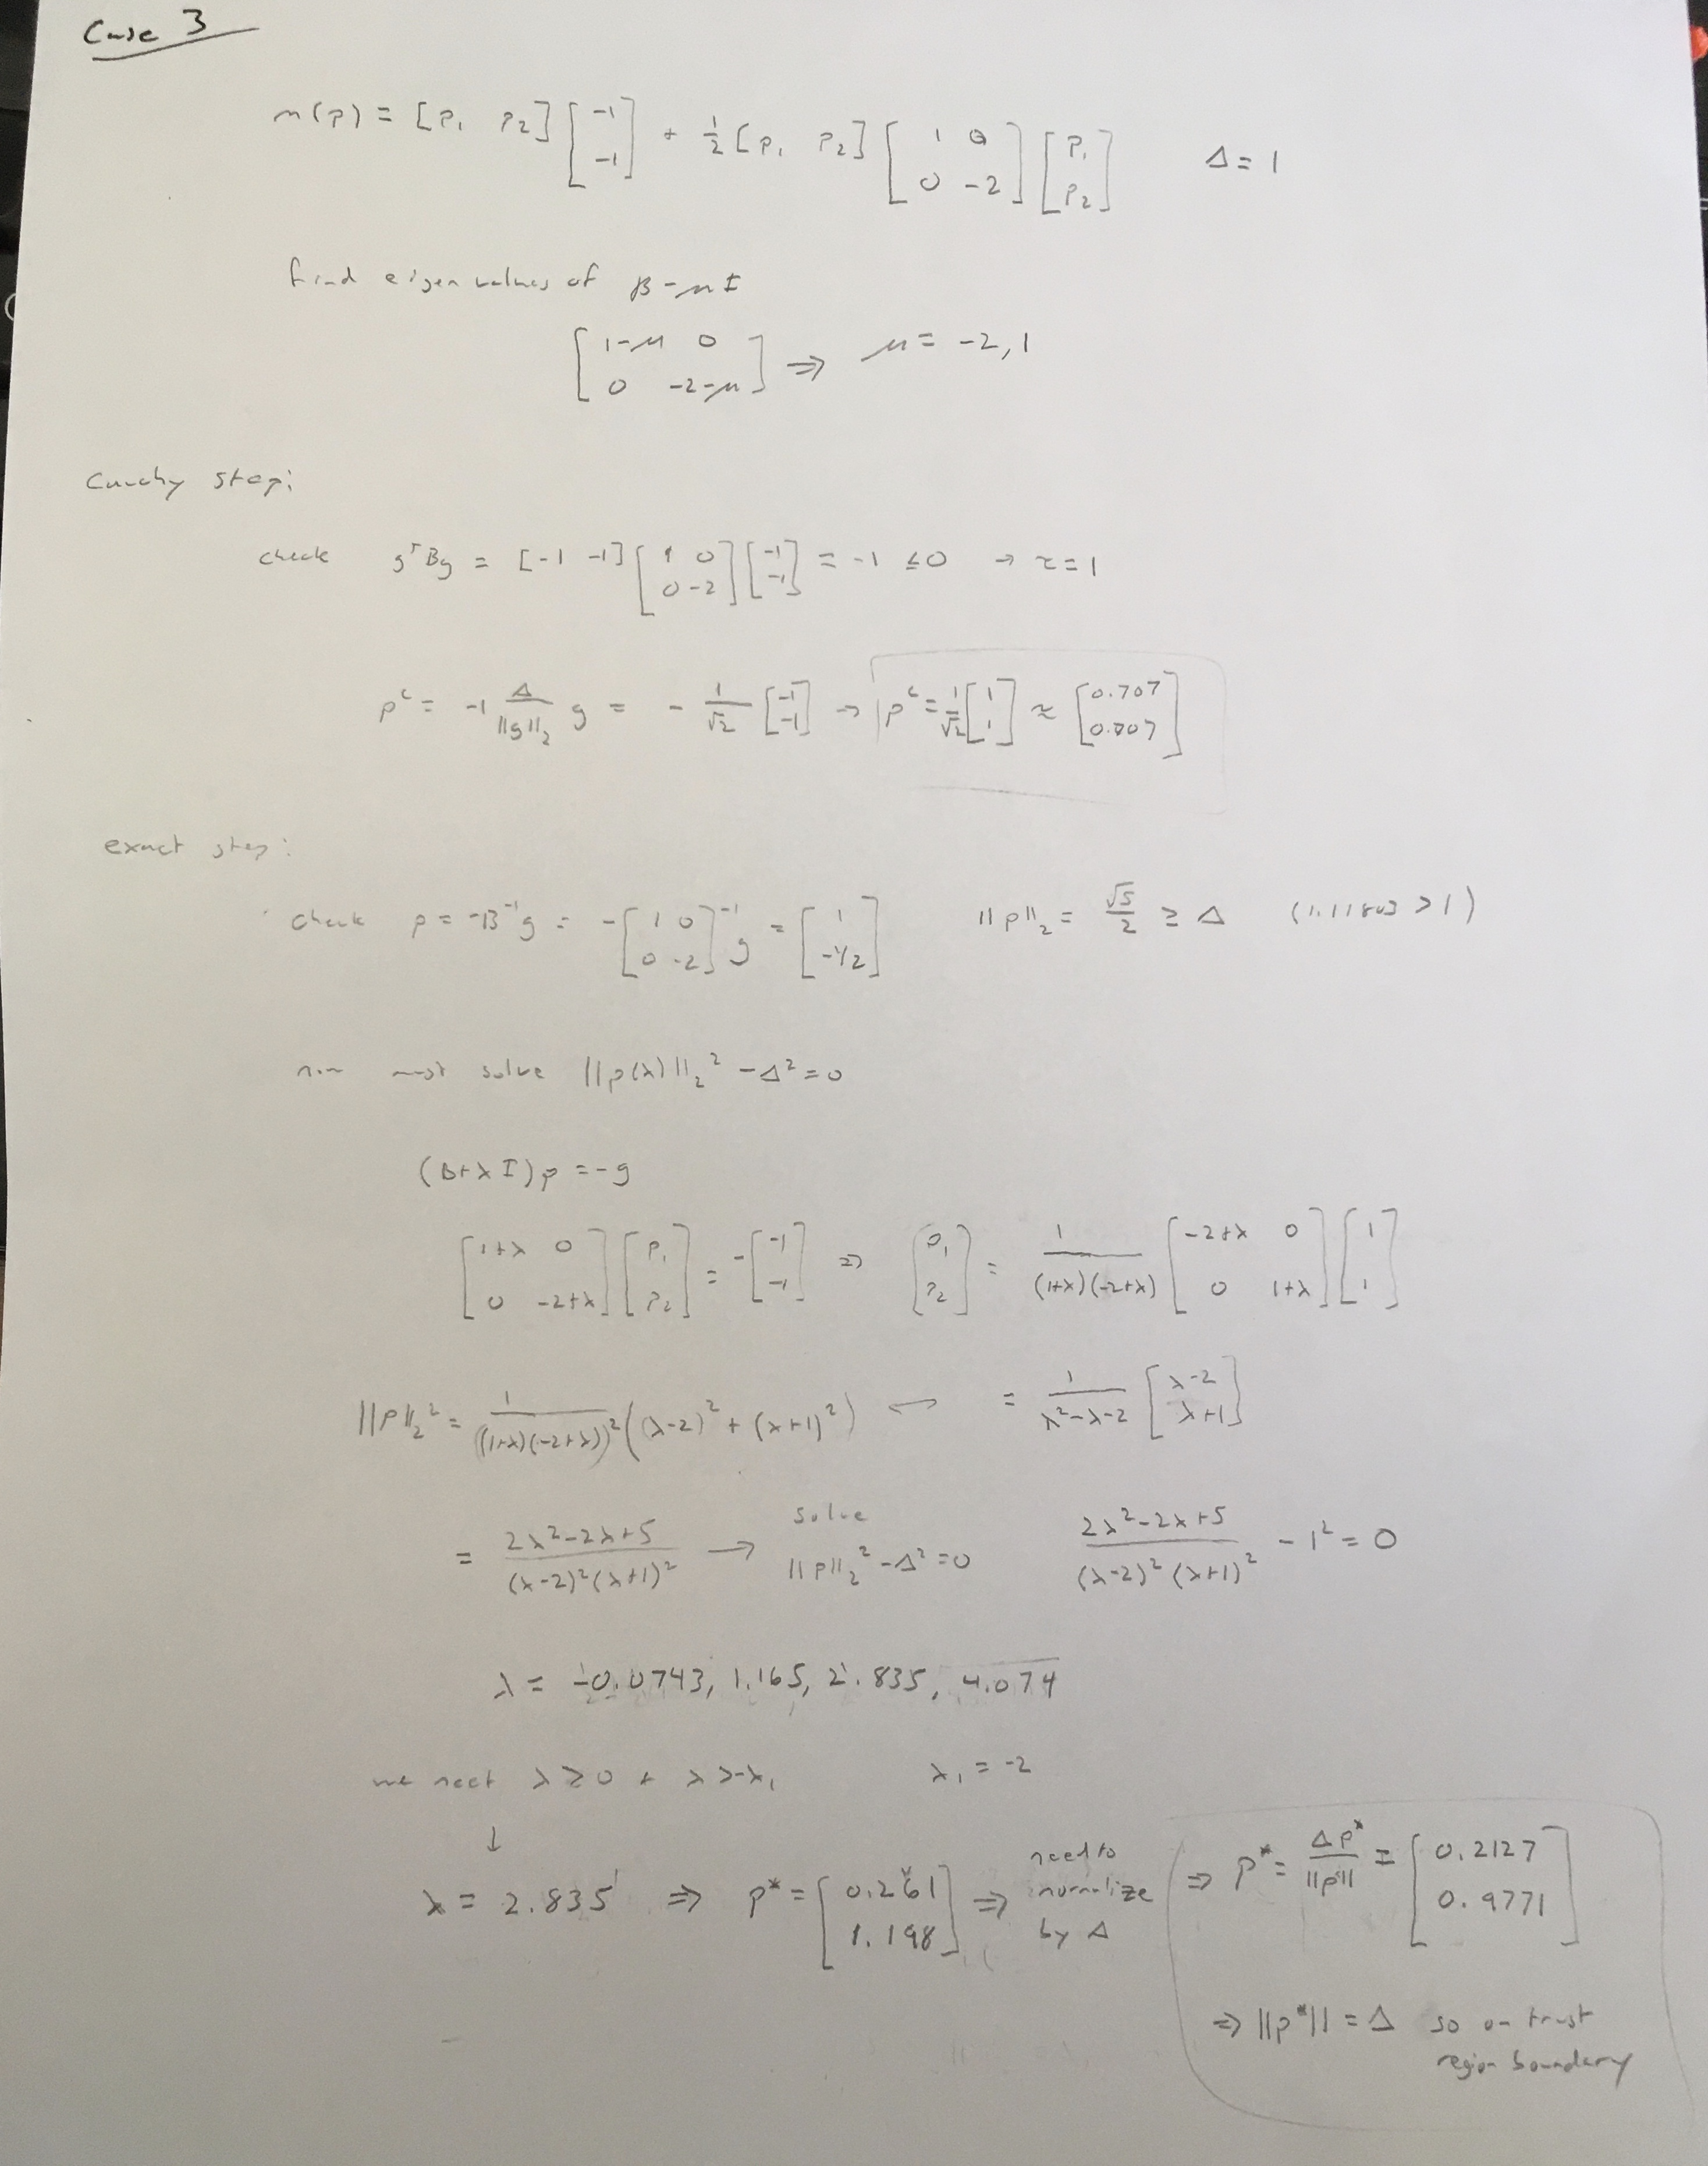 Case 3
m(p) = [p₁ p₂] [-1; -1] + ½ [p₁ p₂] [1 0; 0 -2] [p₁; p₂]    Δ = 1
find eigen values of B-μI
[1-μ 0; 0 -2-μ] ⇒ μ = -2, 1
Cauchy step:
check gᵀBg = [-1 -1] [1 0; 0 -2] [-1; -1] = -1 ≤ 0 → τ = 1
pᶜ = -1 Δ/||g||₂ g = - 1/√2 [-1; -1] → pᶜ = 1/√2 [1; 1] ≈ [0.707; 0.707]
exact step:
check p = -B⁻¹g = -[1 0; 0 -2]⁻¹ g = [1; -1/2]    ||p||₂ = √5/2 ≥ Δ (1.11803 > 1)
now must solve ||p(λ)||₂² - Δ² = 0
(B+λI)p = -g
[1+λ 0; 0 -2+λ] [p₁; p₂] = -[-1; -1] ⇒ [p₁; p₂] = 1/((1+λ)(-2+λ)) [-2+λ 0; 0 1+λ] [1; 1]
||p||₂² = 1/((1+λ)(-2+λ))² ((λ-2)² + (λ+1)²) ← = 1/(λ²-λ-2) [λ-2; λ+1]
= (2λ²-2λ+5)/((λ-2)²(λ+1)²) → solve ||p||₂² - Δ² = 0    (2λ²-2λ+5)/((λ-2)²(λ+1)²) - 1² = 0
λ = -0.0743, 1.165, 2.835, 4.074
we need λ ≥ 0 + λ > -λ₁    λ₁ = -2
↓
λ = 2.835 ⇒ p* = [0.261; 1.198] ⇒ need to normalize by Δ ⇒ p* = Δp*/||p|| = [0.2127; 0.9771]
⇒ ||p*|| = Δ so on trust
region boundary